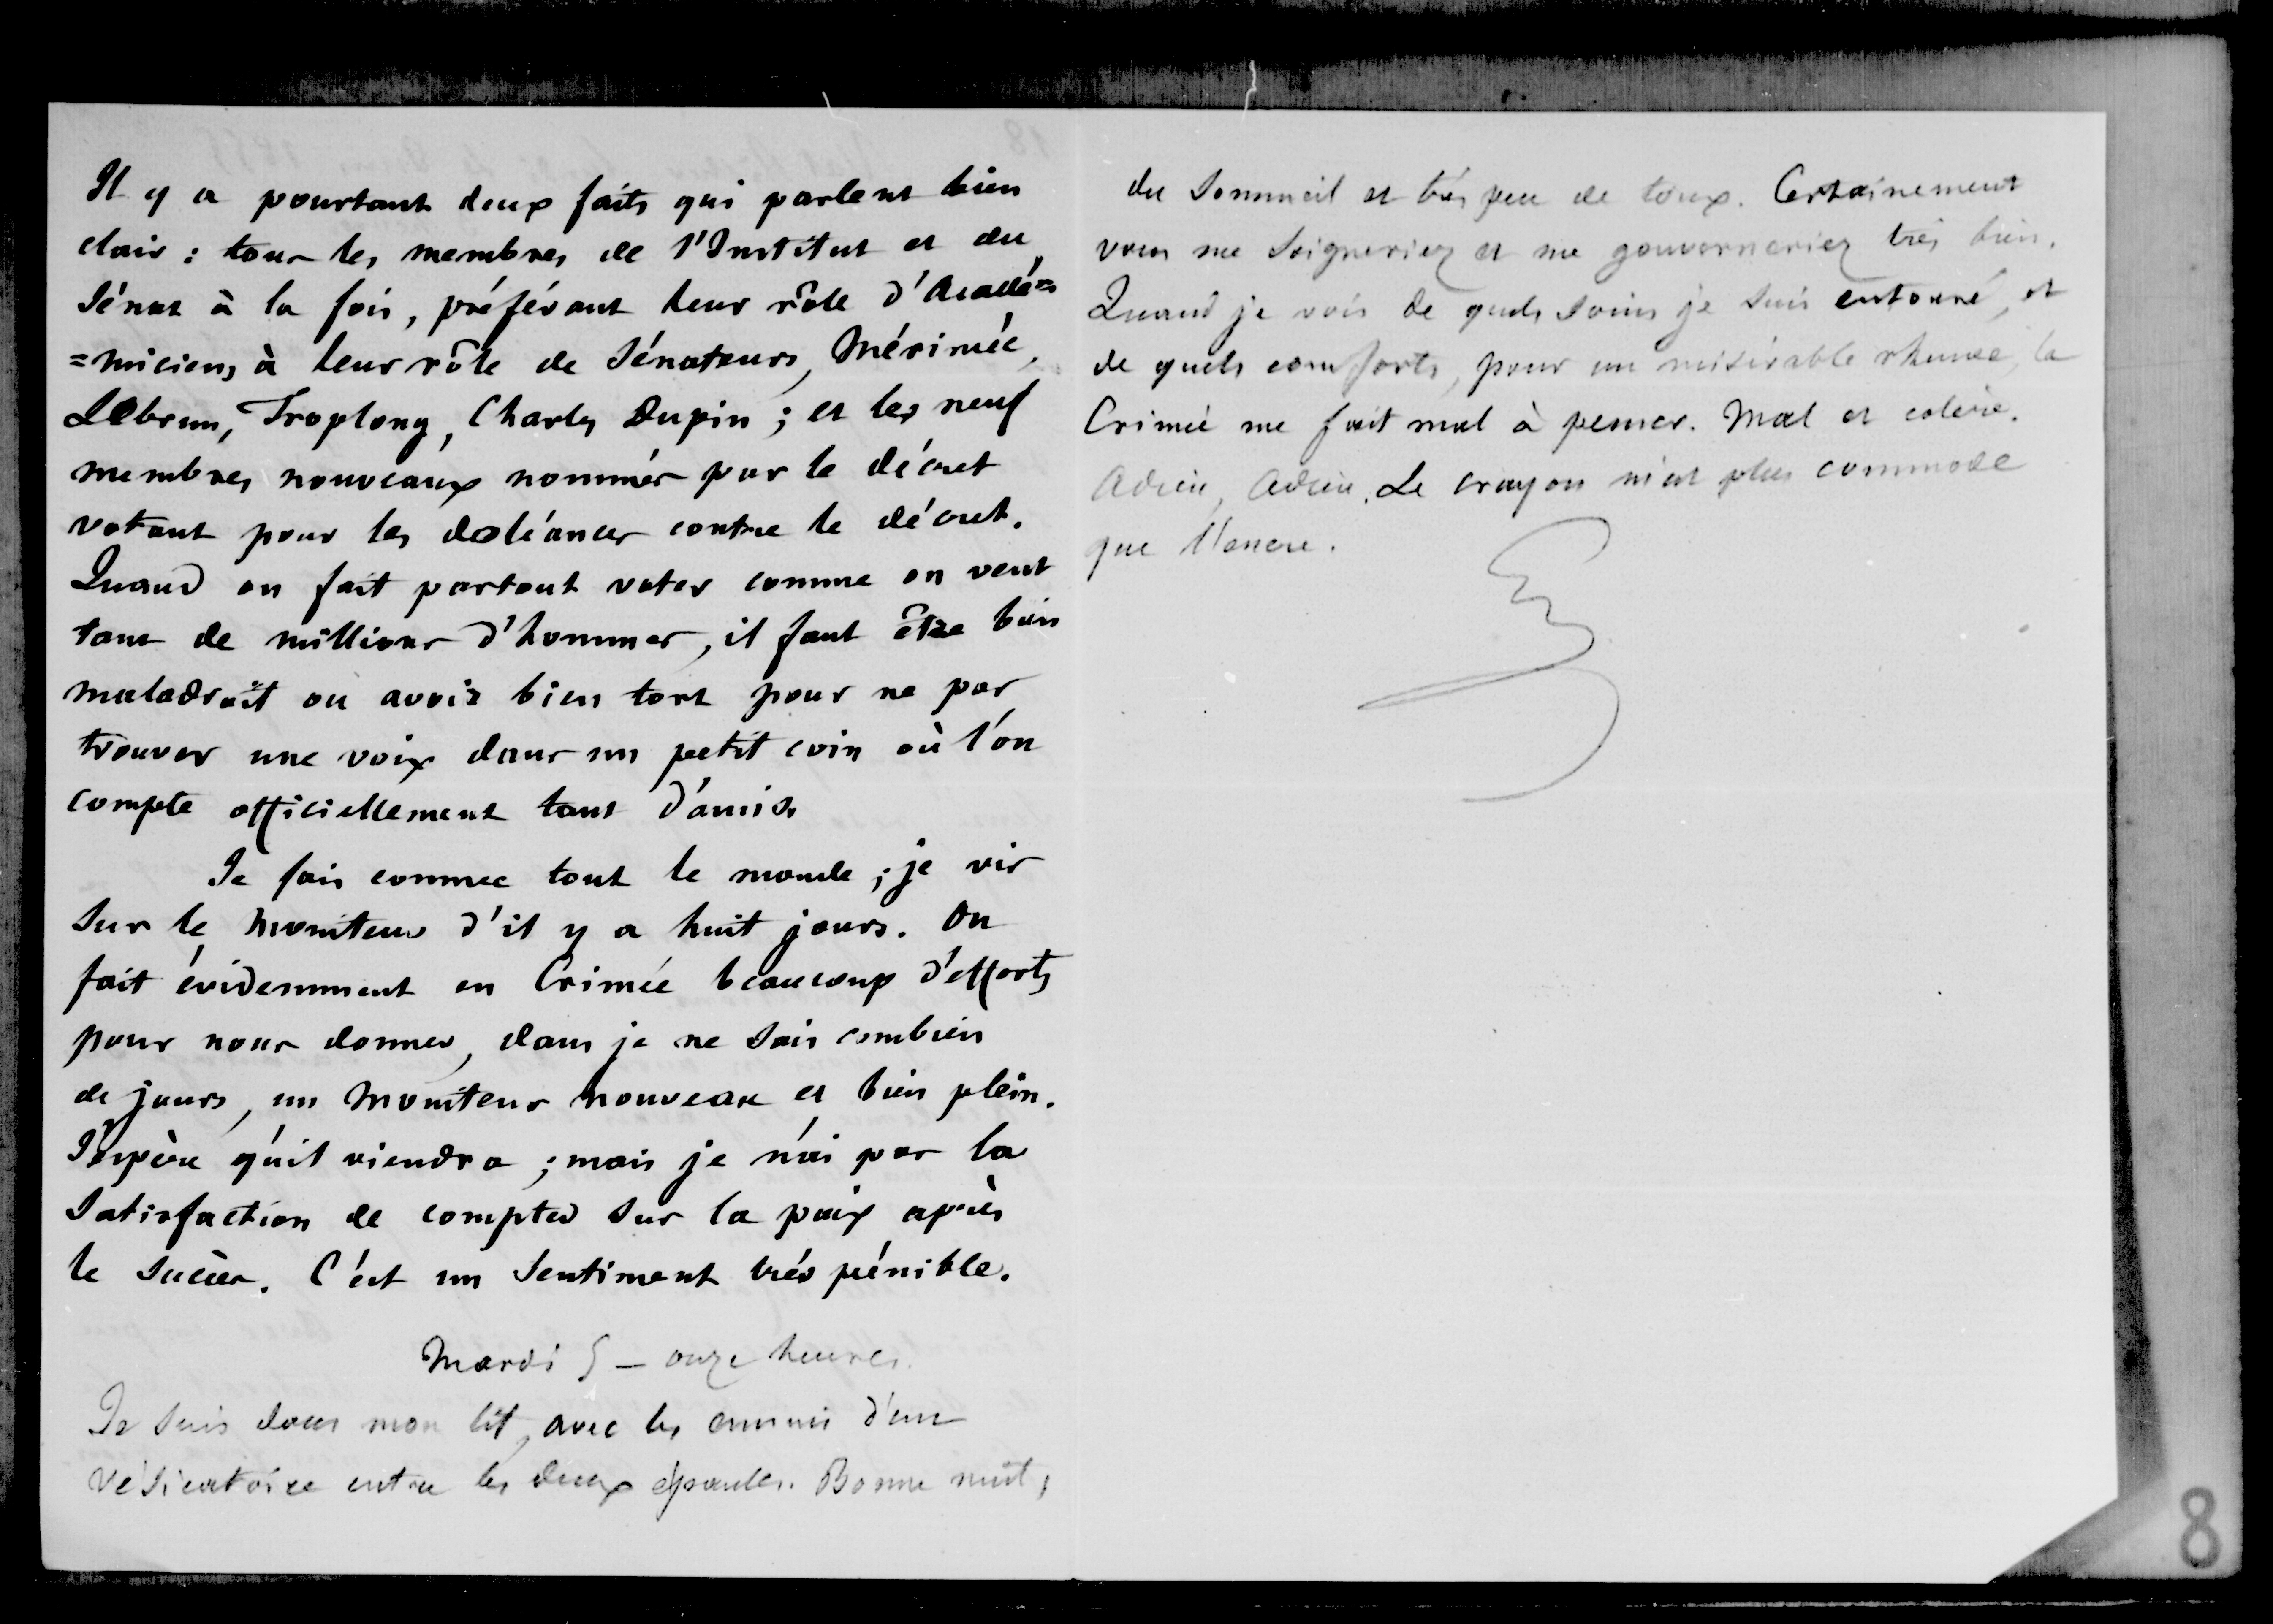 Il y a pourtant deux faits qui parlent bien
clair : tous les membres de l'Institut et du
Sénat à la fois, préférant leur rôle d'Acadé=
=miciens à leur rôle de Sénateurs, Mérimée,
Lebrun, Troplong, Charles Dupin ; et les neuf
membres nouveaux nommés par le décret
votant pour les doléances contre le décret.
Quand on fait partout voter comme on veut
tant de millions d'hommes, il faut être bien
maladroit ou avoir bien tort pour ne pas
trouver une voix dans un petit coin où l'on
compte officiellement tant d'amis.
Je fais comme tout le monde ; je vis
sur le Moniteur d'il y a huit jours. On
fait évidemment en Crimée beaucoup d'efforts
pour nous donner, dans je ne sais combien
de jours, un Moniteur nouveau et bien plein.
J'espère qu'il viendra ; mais je n'ai pas la
satisfaction de compter sur la paix après
le succès. C'est un sentiment très pénible.
Mardi 5 — onze heures.
Je suis dans mon lit, avec les ennuis d'un
vésicatoire entre les deux épaules. Bonne nuit,
du sommeil et très peu de toux. Certainement
vous me soigneriez et me gouverneriez très bien.
Quand je vois de quels soins je suis entouré, et
de quels comforts, pour un misérable rhume, la
Crimée me fait mal à penser. Mal et colère.
Adieu, Adieu. Le crayon m'est plus commode
que l'encre.
8